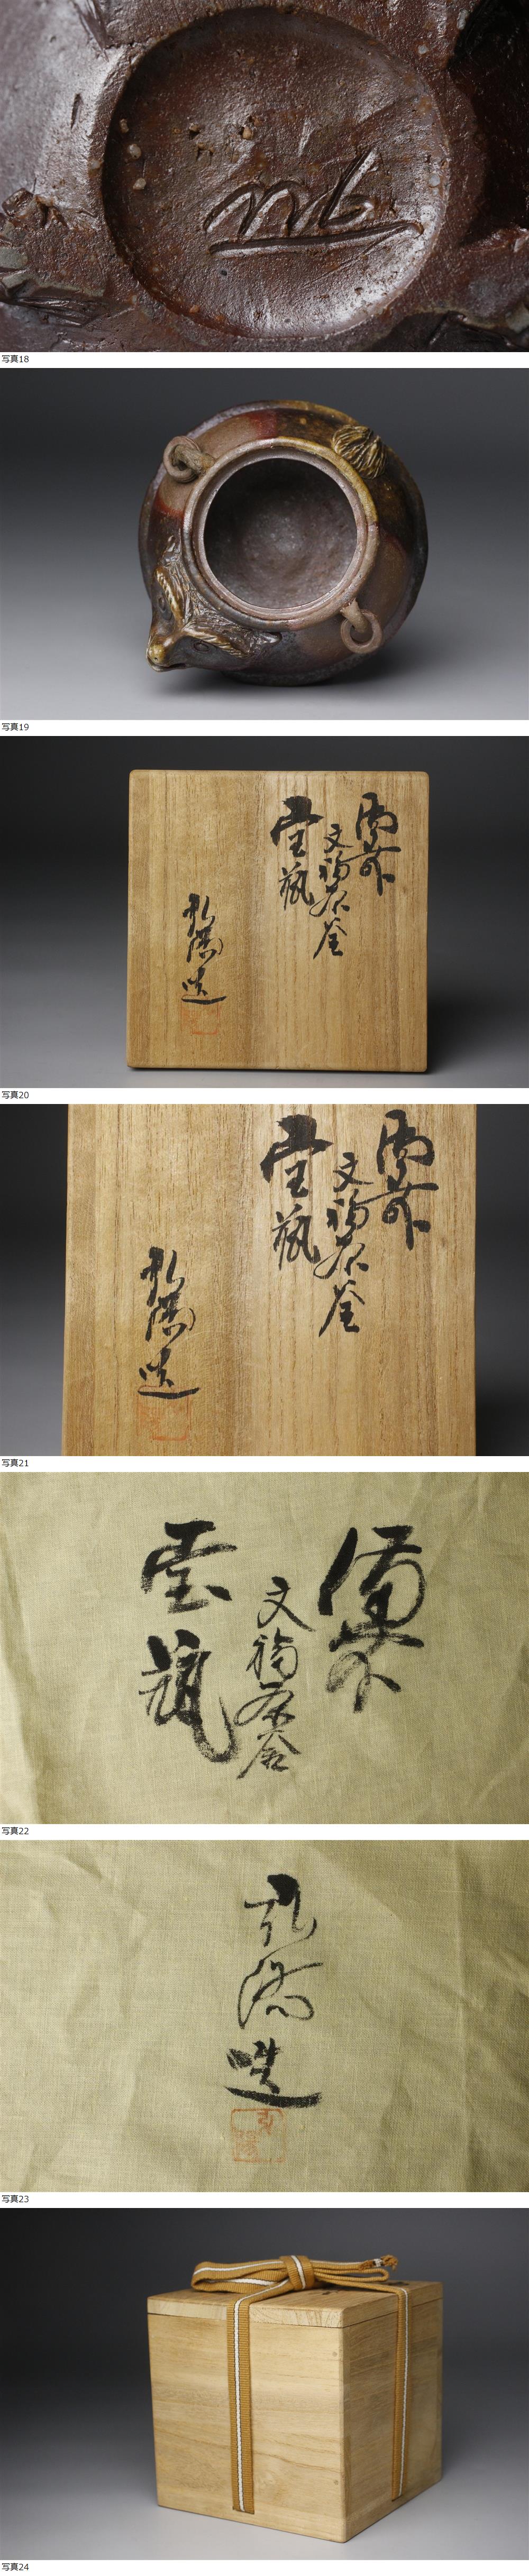 写真18
写真19
備前
文福茶釜
宝瓶
弘陽造
写真20
備前
文福茶釜
宝瓶
弘陽造
写真21
備前
文福茶釜
宝瓶
写真22
弘陽造
弘陽
写真23
写真24